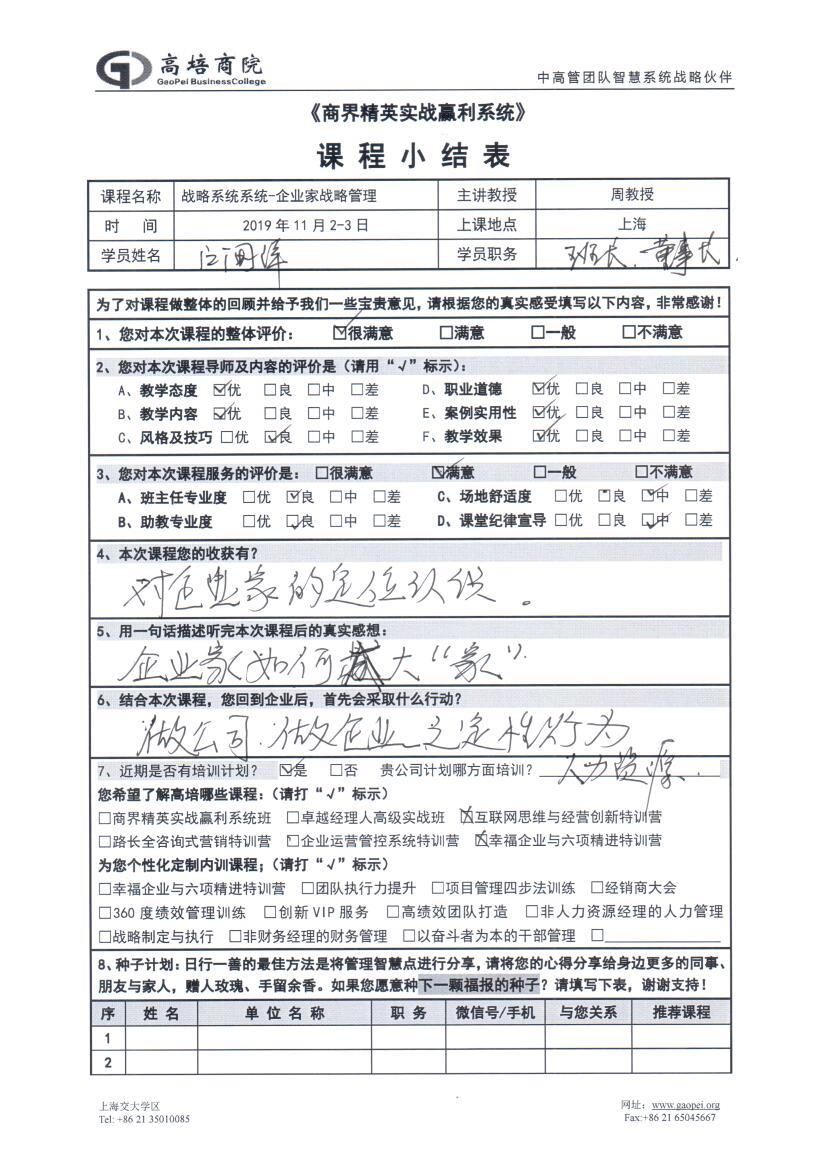 高培商院
GaoPei BusinessCollege
中高管团队智慧系统战略伙伴
《商界精英实战赢利系统》
课程小结表
课程名称 战略系统系统-企业家战略管理 主讲教授 周教授
时 间 2019年11月2-3日 上课地点 上海
学员姓名 学员职务 班长、董事长
为了对课程做整体的回顾并给予我们一些宝贵意见,请根据您的真实感受填写以下内容,非常感谢!
1、您对本次课程的整体评价: ☑很满意 □满意 □一般 □不满意
2、您对本次课程导师及内容的评价是(请用“√”标示):
A、教学态度 ☑优 □良 □中 □差 D、职业道德 ☑优 □良 □中 □差
B、教学内容 ☑优 □良 □中 □差 E、案例实用性 ☑优 □良 □中 □差
C、风格及技巧 □优 ☑良 □中 □差 F、教学效果 ☑优 □良 □中 □差
3、您对本次课程服务的评价是: □很满意 ☑满意 □一般 □不满意
A、班主任专业度 □优 ☑良 □中 □差 C、场地舒适度 □优 □良 ☑中 □差
B、助教专业度 □优 ☑良 □中 □差 D、课堂纪律宣导 □优 □良 ☑中 □差
4、本次课程您的收获有?
对企业家的定位认识。
5、用一句话描述听完本次课程后的真实感想:
企业家如何大“家”。
6、结合本次课程,您回到企业后,首先会采取什么行动?
做公司、做企业之定性行为
7、近期是否有培训计划? ☑是 □否 贵公司计划哪方面培训? 人力资源.
您希望了解高培哪些课程:(请打“√”标示)
□商界精英实战赢利系统班 □卓越经理人高级实战班 ☑互联网思维与经营创新特训营
□路长全咨询式营销特训营 □企业运营管控系统特训营 ☑幸福企业与六项精进特训营
为您个性化定制内训课程;(请打“√”标示)
□幸福企业与六项精进特训营 □团队执行力提升 □项目管理四步法训练 □经销商大会
□360度绩效管理训练 □创新VIP服务 □高绩效团队打造 □非人力资源经理的人力管理
□战略制定与执行 □非财务经理的财务管理 □以奋斗者为本的干部管理 □
8、种子计划:日行一善的最佳方法是将管理智慧点进行分享,请将您的心得分享给身边更多的同事、
朋友与家人,赠人玫瑰、手留余香。如果您愿意种下一颗福报的种子?请填写下表,谢谢支持!
序 姓名 单位名称 职务 微信号/手机 与您关系 推荐课程
1
2
上海交大学区 网址: www.gaopei.org
Tel: +86 21 35010085 Fax:+86 21 65045667